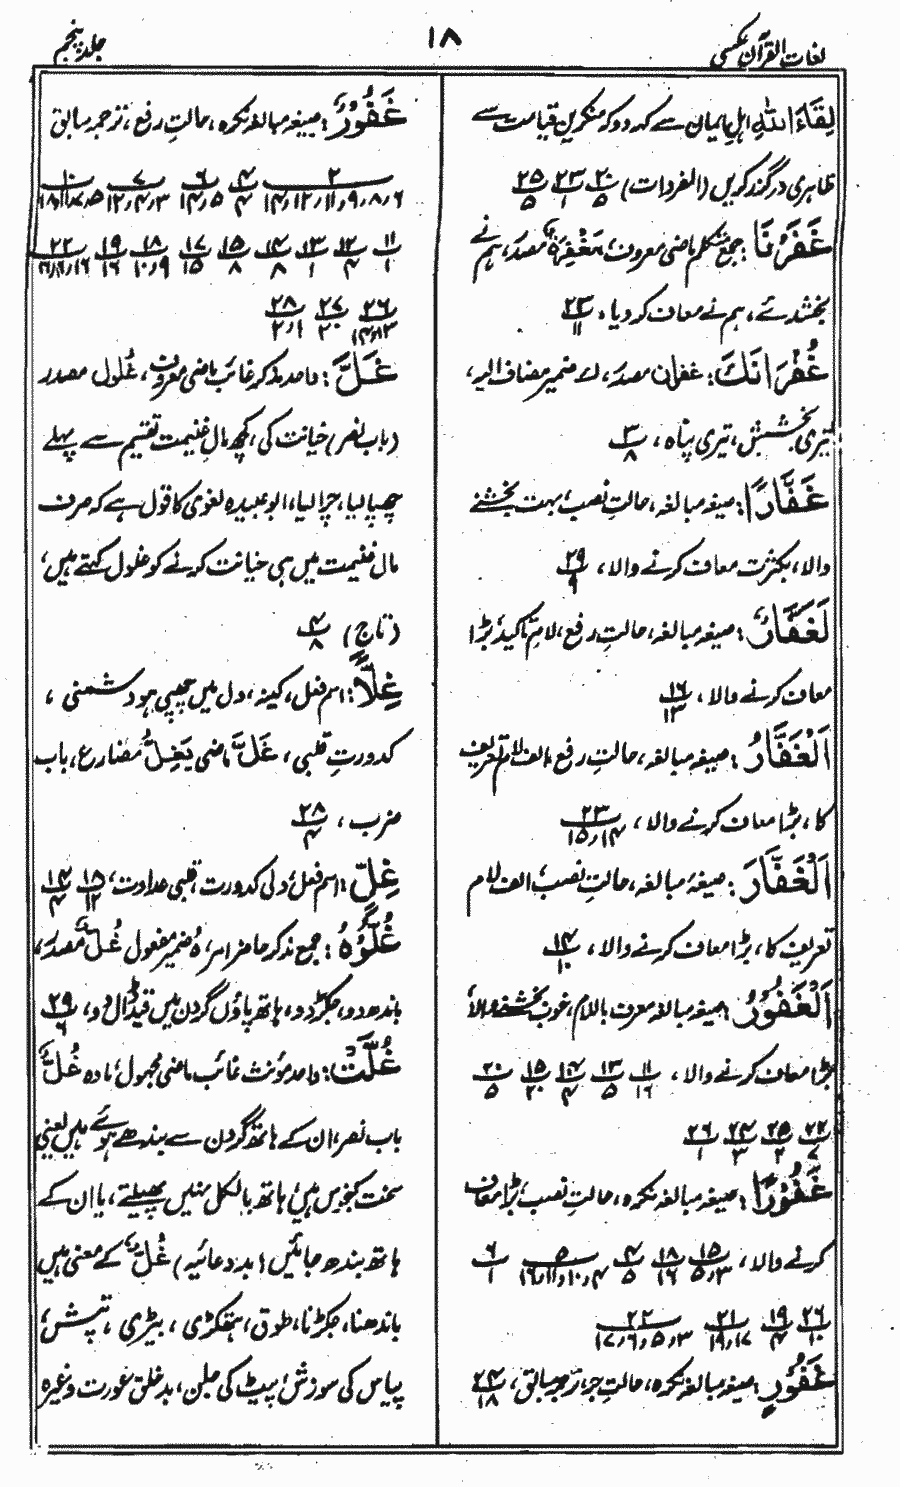 لغات القرآن عکسی
۱۸
جلد پنجم
لِقَاءَ اللهِ اہلِ ایمان سے کہہ دو کہ منکرینِ قیامت سے
ظاہری درگذر کریں (المفردات) ۲۰/۵ ۲۳/۱ ۲۵/۵
غَفَرْنَا : جمع متکلم ماضی معروف، مَغْفِرَةٌ مصدر، ہم نے
بخشدئے، ہم نے معاف کر دیا، ۲۳/۱۱
غُفْرَانَكَ : غفران مصدر، ك ضمیر مضاف الیہ،
تیری بخشش، تیری پناہ، ۳/۸
غَفَّارًا : صیغہ مبالغہ، حالتِ نصب، بہت بخشنے
والا، بکثرت معاف کرنے والا، ۲۹/۹
لَغَفَّارٌ : صیغہ مبالغہ، حالتِ رفع، لامِ تاکید، بڑا
معاف کرنے والا، ۱۶/۱۳
اَلْغَفَّارُ : صیغہ مبالغہ، حالتِ رفع، الف لام تعریف
کا، بڑا معاف کرنے والا، ۲۳/۱۴،۱۵
اَلْغَفَّارَ : صیغہ مبالغہ، حالتِ نصب، الف لام
تعریف کا، بڑا معاف کرنے والا، ۲۴/۱۰
اَلْغَفُوْرُ : صیغہ مبالغہ معرف باللام، خوب بخشنے والا،
بڑا معاف کرنے والا، ۱۱/۱۶ ۱۳/۵ ۱۴/۴ ۱۵/۲۰ ۲۰/۵
۲۲/۷ ۲۵/۲ ۲۴/۳ ۲۶/۱
غَفُوْرًا : صیغہ مبالغہ نکرہ، حالتِ نصب، بڑا معاف
کرنے والا، ۱۵/۳،۵ ۱۸/۱۶ ۴/۵ ۵/۴،۱۰،۱۱،۱۶ ۶/۱
۲۶/۱۰ ۱۹/۴ ۲۱/۱۷،۱۹ ۲۲/۳،۵،۶،۱۷
غَفُوْرٍ : صیغہ مبالغہ نکرہ، حالتِ جر، ترجمہ سابق، ۲۴/۱۸
غَفُوْرٌ : صیغہ مبالغہ نکرہ، حالتِ رفع، ترجمہ سابق
۲/۶،۸،۹،۱۱،۱۲،۱۴ ۴/۴ ۶/۵،۱۴ ۷/۳،۴،۱۲ ۱۰/۵،۷،۱۱،۱۸
۱۱/۱ ۱۲/۴ ۱۳/۱ ۱۴/۸ ۱۵/۸ ۱۷/۱۵ ۱۸/۹،۱۰ ۱۹/۱۶ ۲۲/
۲۶/۱۳، ۲۷/۲۰ ۲۸/۱،۲
غَلَّ : واحد مذکر غائب ماضی معروف، غُلول مصدر
(باب نصر) خیانت کی، کچھ مالِ غنیمت تقسیم سے پہلے
چھپا لیا، چرا لیا، ابو عبیدہ لغوی کا قول ہے کہ صرف
مال غنیمت میں ہی خیانت کرنے کو غلول کہتے ہیں،
(تاج) ۴/۸
غِلًّا : اسم فعل، کینہ، دل میں چھپی ہو دشمنی ،
کدورتِ قلبی، غَلَّ ماضی يَغِلُّ مضارع، باب
ضرب، ۲۸/۴
غِلٍّ : اسم فعل، دلی کدورت، قلبی عداوت، ۱۸/۱۲ ۱۴/۴
غُلُّوْهُ : جمع مذکر حاضر امر، ہُ ضمیر مفعول غُلٌّ مصدر،
باندھ دو، جکڑ دو، ہاتھ پاؤں گردن میں قید ڈال دو، ۲۹/۶
غُلَّتْ : واحد مؤنث غائب ماضی مجہول، مادہ غُلٌّ
باب نصر، ان کے ہاتھ گردن سے بندھے ہوئے ہیں یعنی
سخت کنجوس ہیں، ہاتھ بالکل نہیں پھیلتے، یا ان کے
ہاتھ بندھ جائیں (بد دعائیہ) غُلٌّ کے معنی ہیں
باندھنا، جکڑنا، طوق، ہتھکڑی، بیڑی، تپش،
پیاس کی سوزش، پیٹ کی جلن، بد خلق عورت وغیرہ